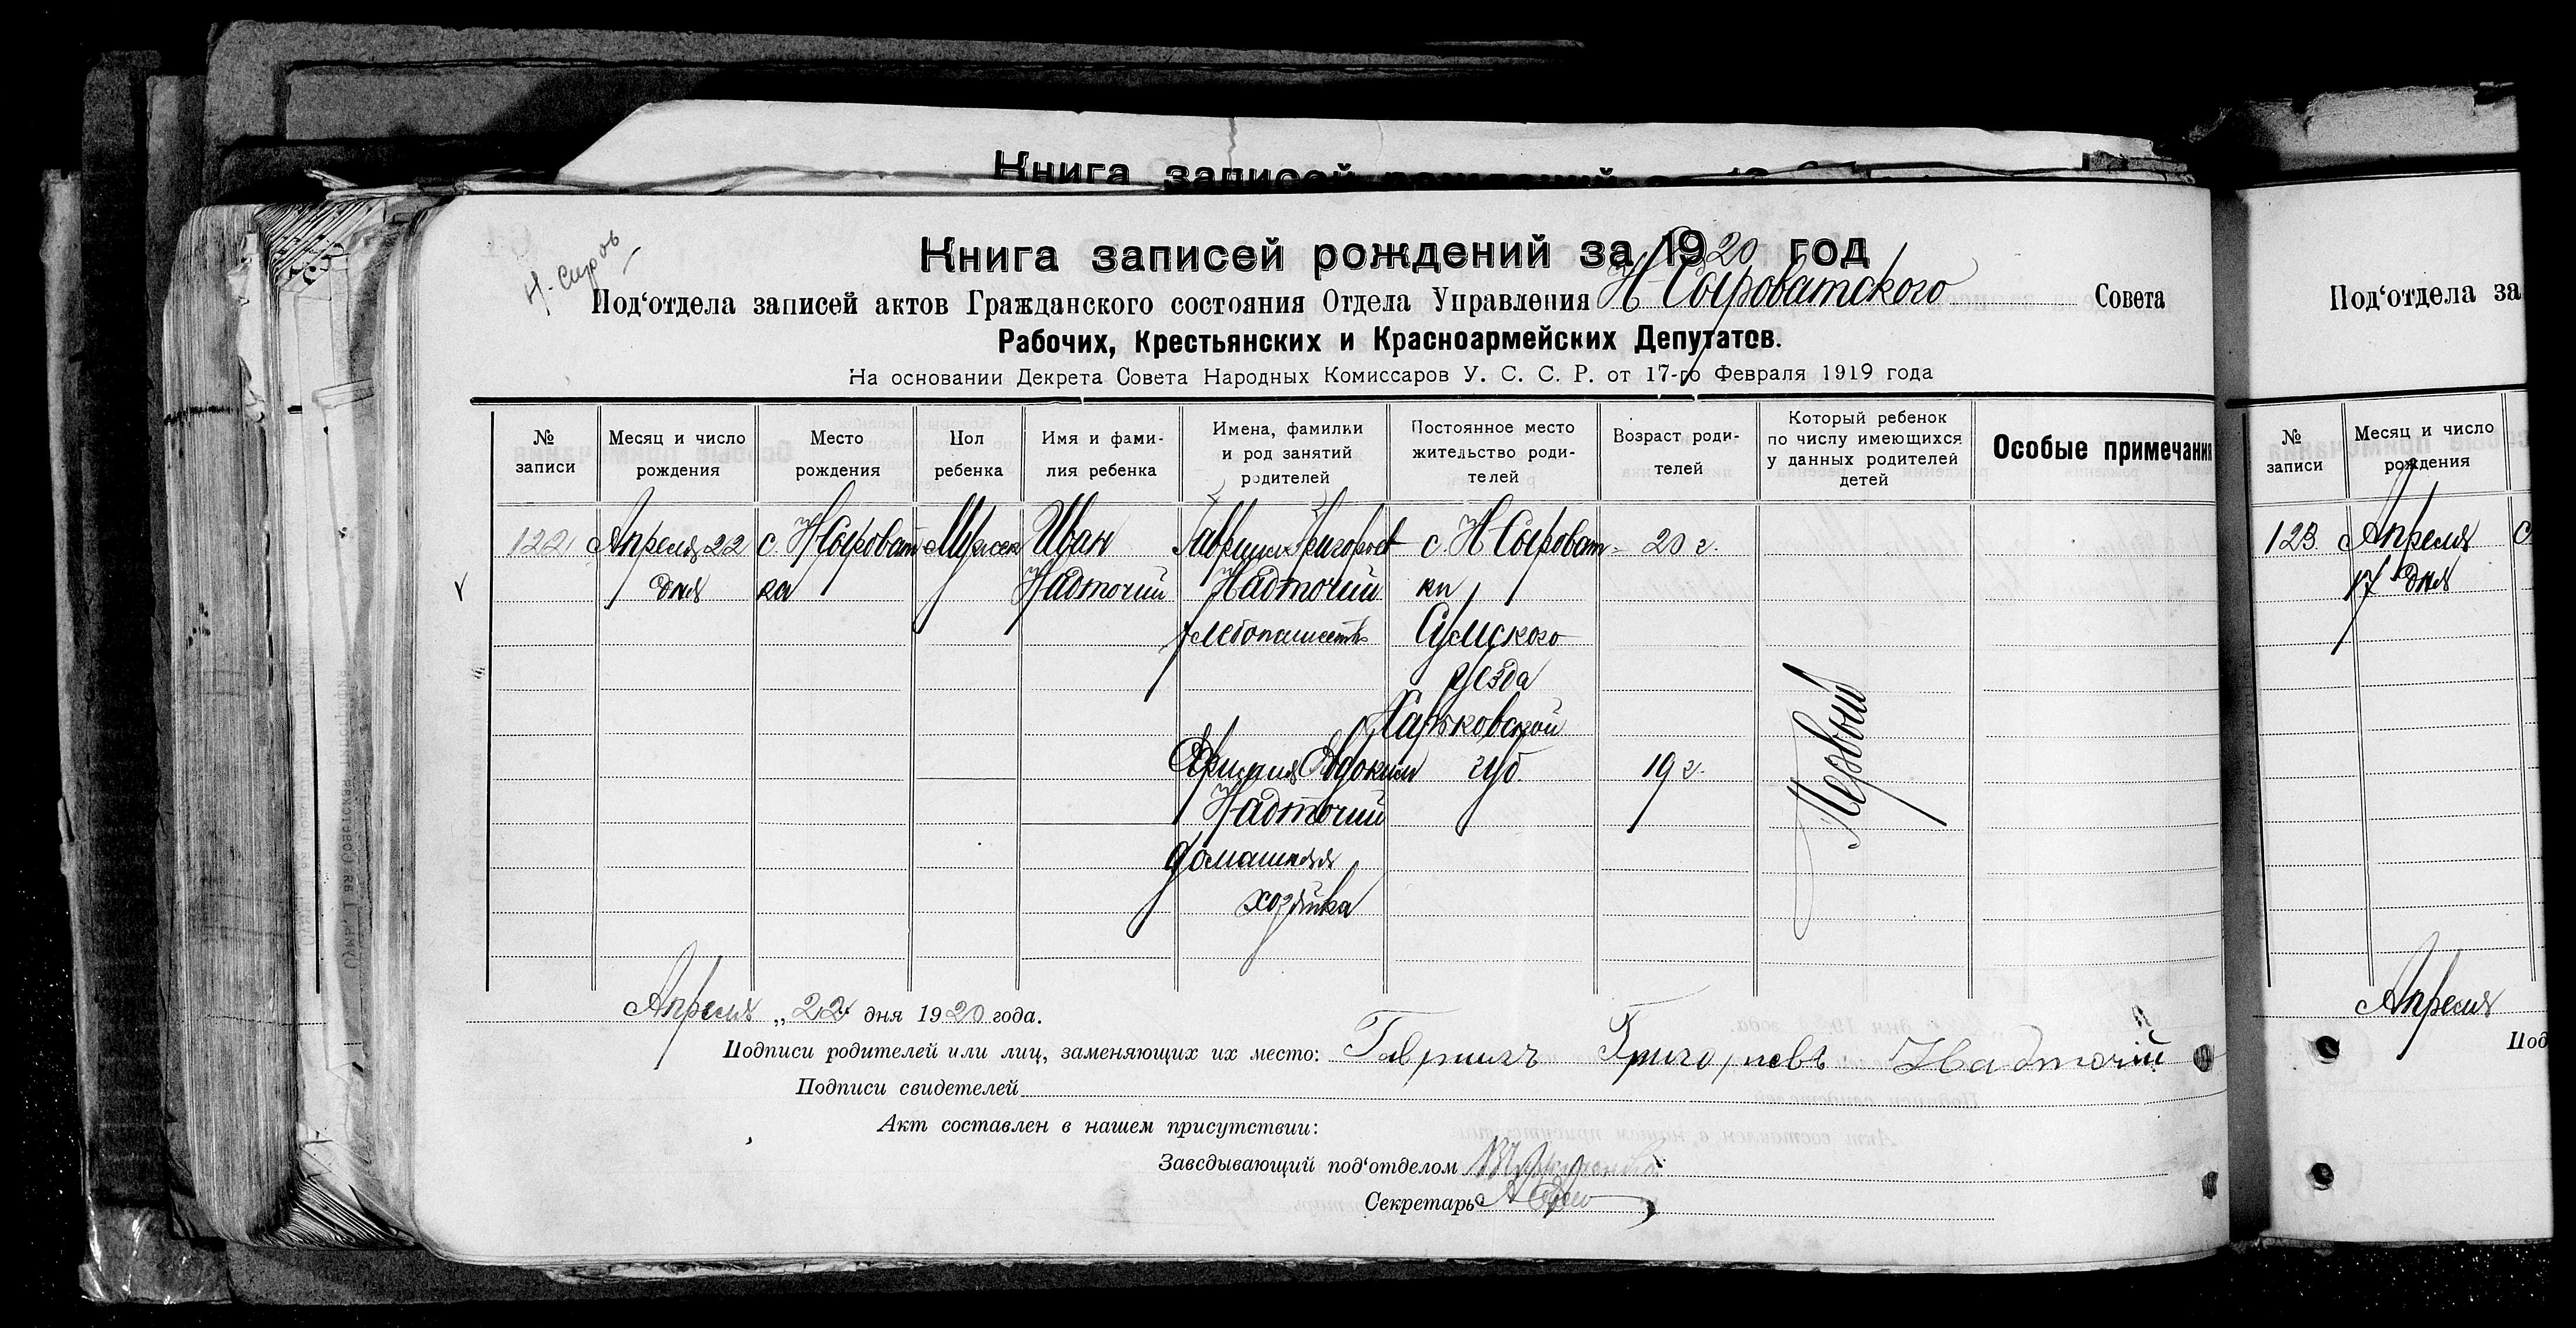 Книга записей рождений за 19
Н-Сыров
Книга записей рождений за 1920 год
Под‘отдела записей актов Гражданского состояния Отдела Управления Н-Сыроватского Совета
Рабочих, Крестьянских и Красноармейских Депутатов.
На основании Декрета Совета Народных Комиссаров У. С. С. Р. от 17-го Февраля 1919 года
№ записи
Месяц и число рождения
Место рождения
Пол ребенка
Имя и фами- лия ребенка
Имена, фамилии и род занятий родителей
Постоянное место жительство роди- телей
Возраст роди- телей
Который ребенок по числу имеющихся у данных родителей детей
Особые примечания
122
Апреля 22
дня
с. Н Сыроват
ка
Мужск
Иван
Надточий
Гавриил Григорьев
Надточий
хлебопашеств
с. Н-Сыроват-
ки
Сумского
уезда
Харьковской
губ.
20 г.
Евдоким
Надточий
домашняя
хозяйка
19 г.
Первый
Апреля „22“ дня 1920 года.
Подписи родителей или лиц, заменяющих их место: Гавриилъ Григорьевъ Надточій
Подписи свидетелей
Акт составлен в нашем присутствии:
Заведывающий под‘отделом
Секретарь
Под‘отдела за
№ записи
Месяц и число рождения
123
Апреля
17 дня
с
Апреля
Под